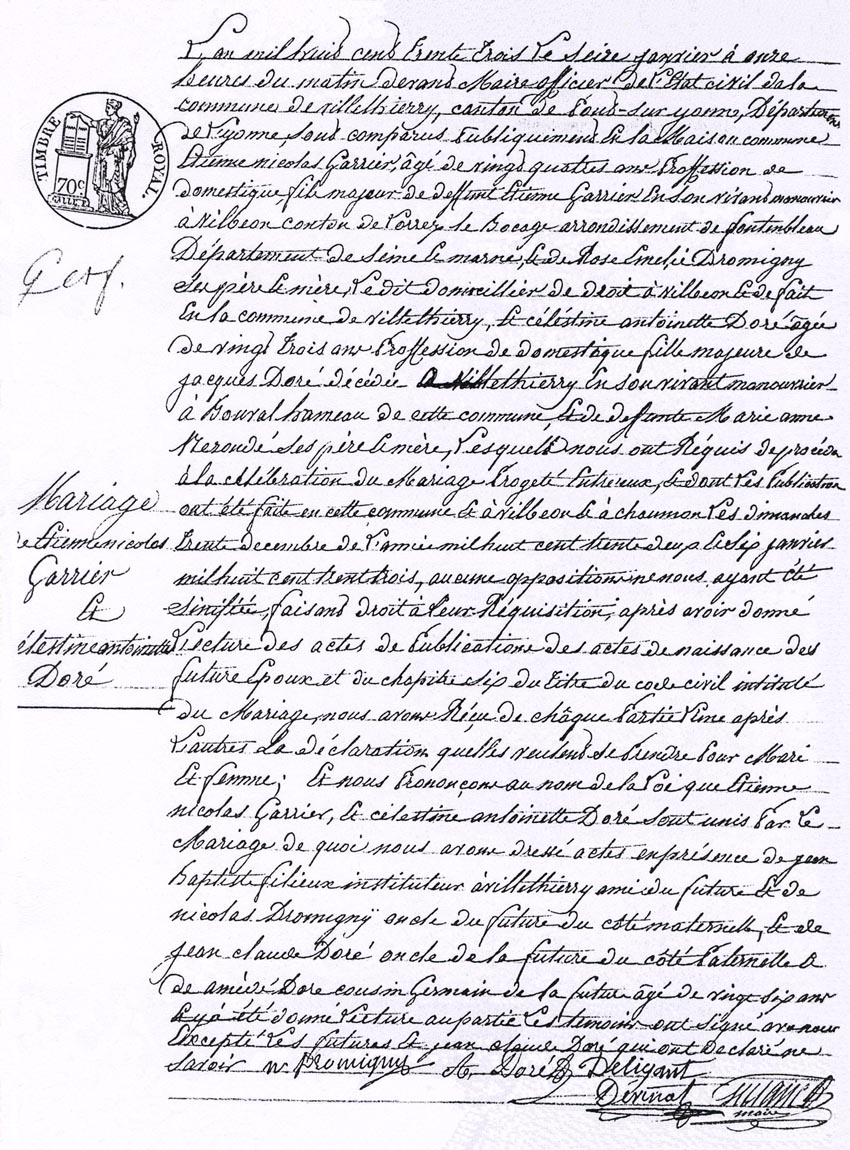 L'an mil huit cent trente trois le seize janvier à onze
heures du matin devant Maire officier de l'Etat civil de la
commune de villethierry, canton de Pont-sur-yonne, Département
de l'yonne, sont comparus Publiquement En la Maison commune
Etienne nicolas Garrier, âgé de vingt quatre ans Proffession de
domestique fils majeur de deffunt Etienne Garrier En son vivant manouvrier
à vilbeon conton de Lorrez le Bocage arrondissement de fontenbleau
Département de Seine Et marne, Et de Rose Emelie Dromigny
Ses père Et mère, Le dit domicillier de droit à vilbeon Et de fait
En la commune de villethierry, Et célestine antoinette Doré âgée
de vingt trois ans Proffession de domestique fille majeure de
jacques Doré décédée a villethierry En son vivant manouvrier
à Bouval hameau de cette commune, Et de deffunte Marie anne
ses père Et mère, Lesquels nous ont Réquis de procéder
à la célébration du Mariage Progeté Entre eux, Et dont Les Publication
ont été faite en cette commune Et à vilbeon Et à chaumon Les dimanches
trente decembre de L'année mil huit cent trente deux Et sip janvier
mil huit cent trent trois, aucune opposition ne nous ayant été
sinifiée, faisant droit à leur Réquisition, après avoir donné
Lecture des actes de Publications des actes de naissance des
future Epoux et du chapitre sip du titre du code civil intitulé
du Mariage, nous avons Réçu de châque Partie L'une après
L'autres La déclaration quelles veulent se Prendre Pour Mari
Et femme; Et nous Prononçons au nom de la Loi que Etienne
nicolas Garrier, Et célestine antoinette Doré sont unis Par Le
Mariage de quoi nous avons dressé actes en présence de jean
baptiste filieux instituteur à villethierry ami du future Et de
nicolas Dromignÿ oncle du future du côté maternelle, Et de
jean claude Doré oncle de la future du côté Paternelle Et
de amédé Doré cousin Germain de la future âgé de vingt sip ans
Et y à été donné Lecture au partie Les temoins ont signé avec nous
Excepté Les futures Et jean claude Doré qui ont Declaré ne
savoir n Dromigny A. Doré Deligant
maire
TIMBRE ROYAL.
70c
Mariage
Etienne nicolas
Garrier
Et
élestine antoinette
Doré